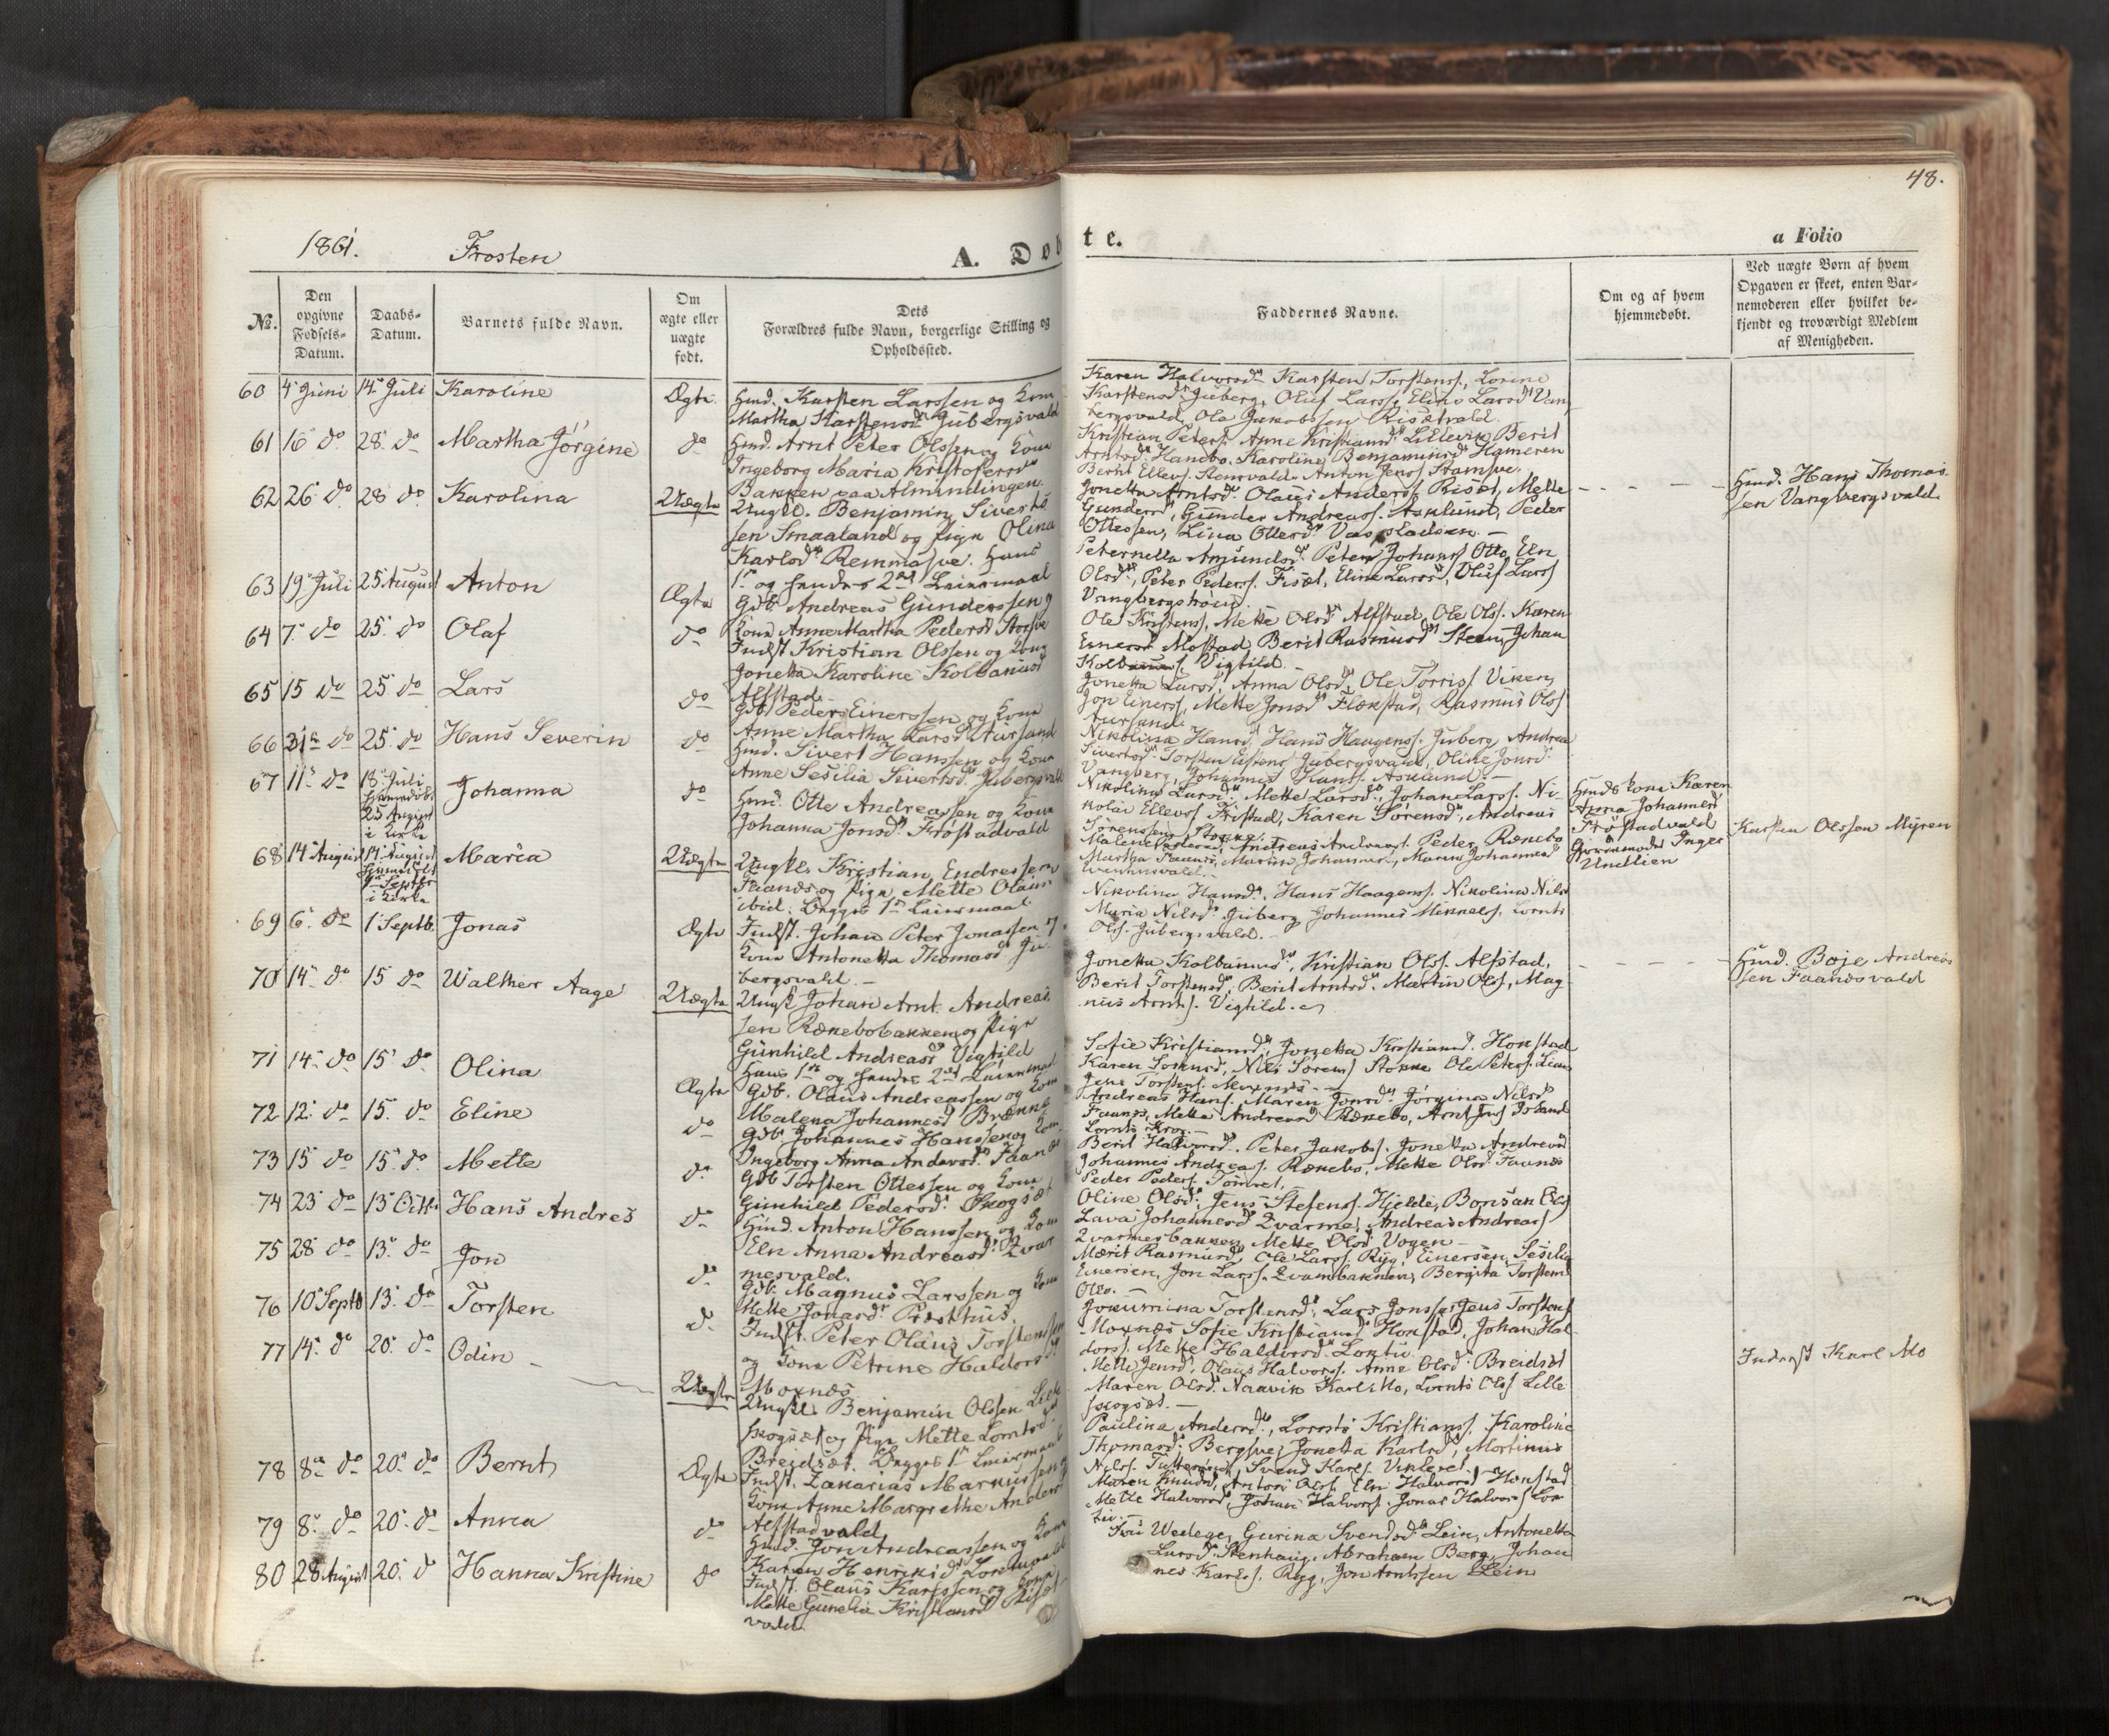 48.
1861. Frosten
A. Døbte.
a Folio
№.
Den opgivne Fødsels-Datum.
Daabs-Datum.
Barnets fulde Navn.
Om ægte eller uægte født.
Dets Forældres fulde Navn, borgerlige Stilling og Opholdssted.
Faddernes Navne.
Om og af hvem hjemmedøbt.
Ved uægte Børn af hvem Opgaven er skeet, enten Barnemoderen eller hvilket bekjendt og troværdigt Medlem af Menigheden.
60 4 Juni 14 Juli Karoline Ægte
Husd. Karsten Larssen og Kone
Martha Karstensd Jubergsvald
Karen Halvorsd Karsten Torstens., Lorine
Karstensd Juberg, Oluf Larss, Eline Larsd Van
bergsvald, Ole Jakobssen Risætvald
61 16 do 28 do Martha Jørgine do
Husd. Arnt Peter Olssen og Kone
Ingeborg Maria Kristofersd
Bakken paa Almindingen.
Kristian Peters. Anne Kristiansd Lillevik Berit
Arntsd. Hanebo. Karoline Benjaminsd Hameren
Bernt Ellevs. Anton Jenss
62 26 do 28 do Karolina Uægte
Ungkl. Benjamin Siverts
sen Smaaland og Pige Olina
Karlsd Remmasve. Hans
1ste og hendes 2det Leiermaal
Jonetta Arntsd. Olaus Anderss Risæt, Mette
Gundersd, Gunder Andreass. Aslund, Peder
Ottessen, Lina Ottersd
Husd. Hans Thomas
sen Vangbergsvald.
63 19 Juli 25 August Anton Ægte
Gdb Andreas Gunderssen og
Kone Anne Martha Pedersd
Peternella Amundsd. Peter Johans Otto, Eln
Olsd, Peter Pederss. Fisæt, Eline Larsd, Oluf Larss
64 7 do 25 do Olaf do
Indst Kristian Olssen og Kone
Jonetta Karoline Kolbanusd
Alfstad
Ole Kristens, Mette Olsd Alfstad, Ole Olss. Karen
Einersd Mostad Berit Rasmusd Steen, Johan
Kolbanus, Vigtild.
65 15 do 25 do Lars do
Gdb Peder Einerssen og Kone
Anne Martha Larsd Aursand
Jonetta Larsd, Anna Olsd, Ole Torriss. Viken,
Jon Einerss, Mette Jonsd Flækstad, Rasmus Olss
Aursand
66 31te do 25 do Hans Severin do
Husd. Sivert Hanssen og Kone
Anne Sesilia Sivertsd Jubergsvald
Nikolina Hansd, Hans Haagenss. Juberg, Andrea
Sivertsd. Torsten Jubergsvald, Oline Jonsd.
Vangberg, Johannes Aslund.
67 11 do 18 Juli hjemmedøbt 25 August i Kirke Johanna do
Husd. Otte Andreassen og Kone
Johanna Jonsd. Frøstadvald
Nikolina Larsd Mette Larsd, Johan Larss. Ni-
kolai Ellevss Fristad, Karen Sørensd, Andreas
Sørenssen
Husds Kone Karen
Anna Johannesd
Frøstadvald
68 14 August 14 August hjemmedøbt i Kirke Maria Uægte
Ungkl. Kristian Endressen
Faanes og Pige Mette Olaus
ibid. Begges 1ste Leiermaal
Andreas Peder Rønebo
Martha Faanes, Johannes
Gjordmoder Inger
Undlien
Karsten Olssen Myren
69 6 do 1 Septb. Jonas Ægte
Indst. Johan Peter Jonassen og
Kone Antonetta Thomasd Ju-
bergsvald.
Nikolina Hansd, Hans Haagenss. Nikolina Nilsd
Maria Nilsd. Juberg Johannes Mikkels, Lornts
Olss. Jubergsvald.
70 14 do 15 do Walther Aage Uægte
Ungkl Johan Arnt Andreas
sen Rønebobakken og Pige
Gunhild Andreasd Vigtild
Hans 1ste og hendes 2det Leiermaal
Jonetta Kolbanusd, Kristian Olss. Alfstad,
Berit Torstensd, Berit Arntsd. Martin Olss, Mag
nus Arnts. Vigtild.
Husd. Boje Andreas
sen Faanesvald
71 14 do 15 do Olina Ægte
Gdb. Olaus Andreassen og Kone
Malena Johannesd
Sofie Kristiansd, Jonetta Kristiansd. Honstad
Karen Sørensd, Nils Sørens Stokke Ole Peters.
Jens Torstens. Moxnes.
72 12 do 15 do Eline do
Gdb Johannes Hanssen og Kone
Ingeborg Anna Andersd Faanes
Andreas Hans. Maren Jonsd Jørgina Nilsd
Faanes, Mette Andreasd Rønebo, Arnt
73 15 do 15 do Mette do
Gdb Torsten Ottessen og Kone
Gunhild Pedersd Skogsæt
Berit Halvorsd, Peter Jakobs. Jonetta Andreasd
Johannes Andreas. Rønebo, Mette Olsd. Faanes
Peder Peders.
74 23 do 13 Octb. Hans Andres do
Husd. Anton Hanssen og Kone
Eln Anna Andreasd Kvar
mesvald.
Oline Olsd. Jens Stefens. Hjelde,
Johannesd Kvarme, Andreas Andreass
Kvarmesbakken Mette Olsd Vogen
75 28 do 13 do Jon do
Gdb. Magnus Larssen og Kone
Mette Jonasd Presthus.
Marit Rasmusd, Ole Larss. Ryg, Einersen, Sesilie
Einersen, Jon Larss. Bergita Torstensd
76 10 Septb 13 do Torsten do
Indst. Peter Olaus Torstenssen
og Kone Petrine Haldorsd
Moxnes
Torstensd, Lars Jonss, Jens Torstens
Moxnes Sofie Kristiansd Honstad, Johan Hal-
dors, Mette Haldorsd
77 14 do 20 do Odin Uægte
Ungkl. Benjamin Olssen Lille
skogsæt og Pige Mette Lorntsd
Breidsæt. Begges 1ste Leiermaal
Mette Jensd, Olaus Halvorss. Anne Olsd. Breidsæt
Maren Olsd. Naavik Karl Mo, Lornts Olss Lille
skogsæt.
Inderst Karl Mo
78 8de do 20 do Bernt Ægte
Indst. Zakarias Markussen og
Kone Anne Margrethe Andersd
Alfstadvald
Paulina Andersd, Lornts Kristians, Karoline
Thomasd. Bergsve, Jonetta Karlsd, Mortinus
Nilss. Svend Karls.
79 8 do 20 do Anna do
Husd. Jon Andreassen og Kone
Karen Henriksd
Maren Knudsd, Anton Olss. Eln Halvorsd Honstad
Mette Halvorsd, Johan Halvors. Jonas Halvors
80 28 August 20 do Hanna Kristine do
Indst. Olaus Karlssen og Kone
Mette Gunelia Kristiansd Risæt
vald.
Fru Wedege, Gurina Svendsd Lein, Antonetta
Larsd. Stenhaug. Abraham Berg, Johan
nes Karls. Ryg, Jon Arntssen Lein